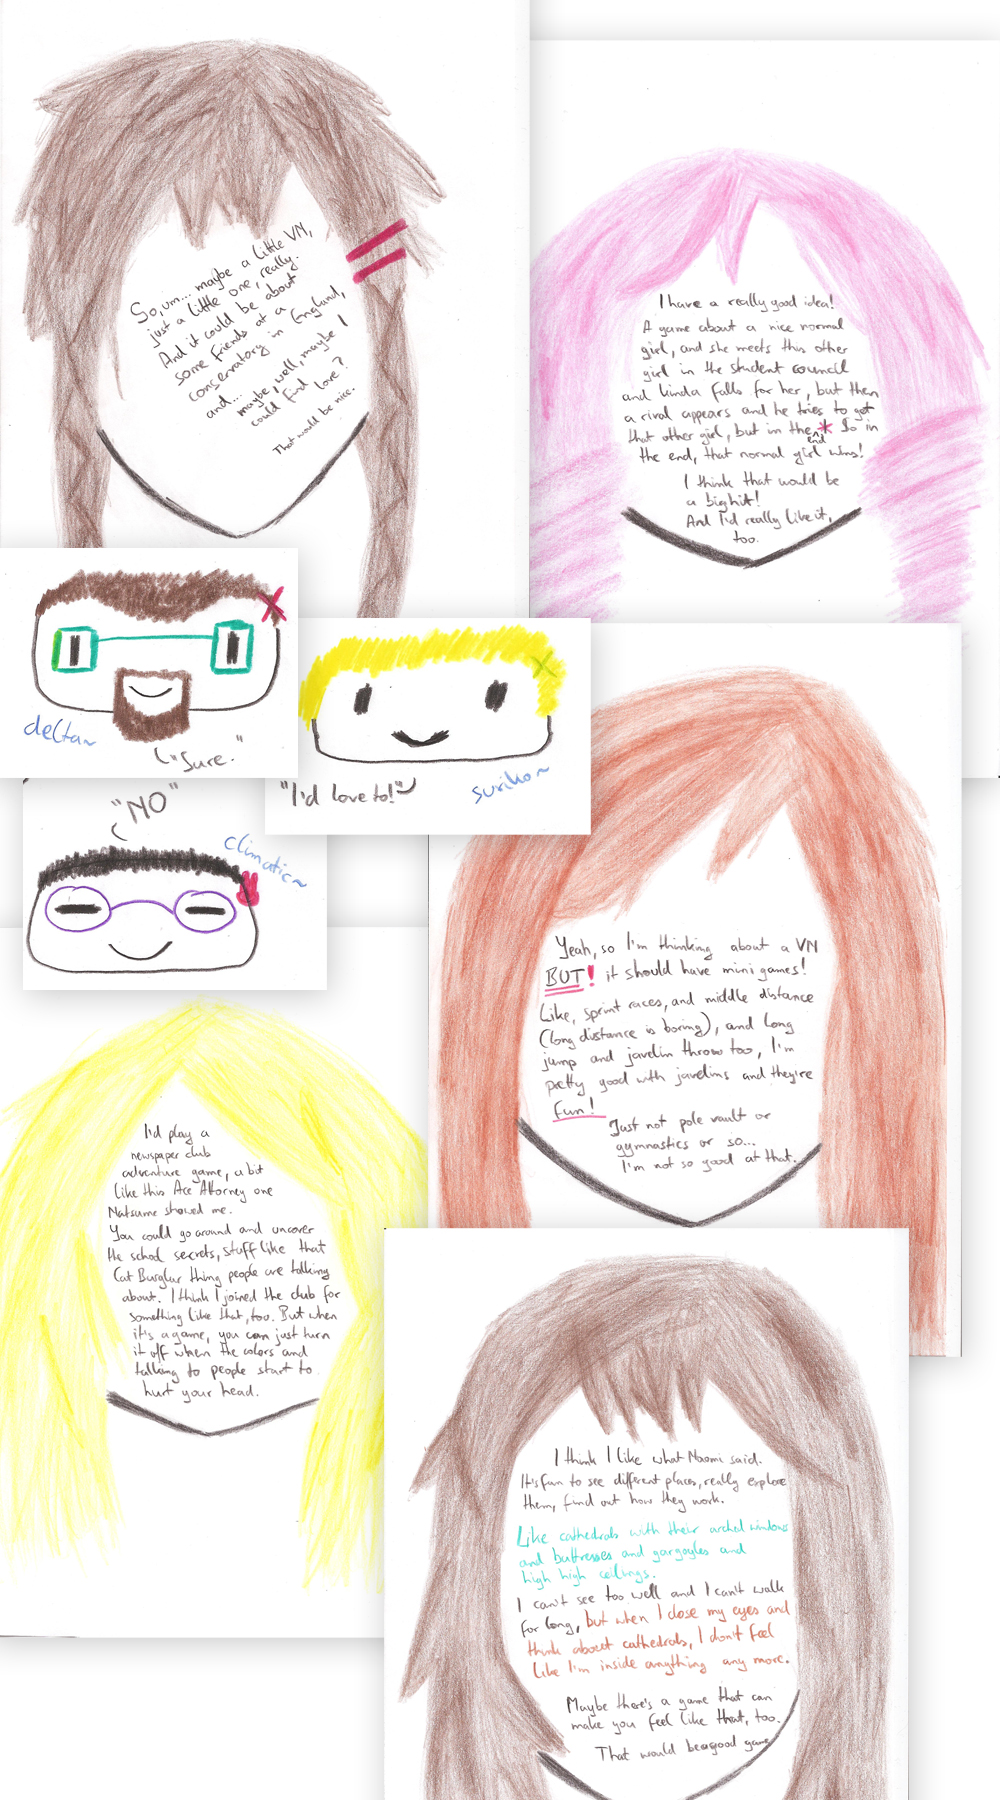 So, um... maybe a little VN,
just a little one, really.
And it could be about
some friends at a
conservatory in England,
and... maybe, well, maybe I
could find love?
That would be nice.
I have a really good idea!
A game about a nice normal
girl, and she meets this other
girl in the student council
and kinda falls for her, but then
a rival appears and he tries to get
that other girl, but in the end* So in
the end, that normal girl wins!
I think that would be
a big hit!
And I'd really like it,
too.
delta~
"Sure."
"I'd love to!"
suriko~
"NO"
climatic~
Yeah, so I'm thinking about a VN
BUT! it should have mini games!
Like, sprint races, and middle distance
(long distance is boring), and long
jump and javelin throw too, I'm
pretty good with javelins and they're
fun!
Just not pole vault or
gymnastics or so...
I'm not so good at that.
I'd play a
newspaper club
adventure game, a bit
like this Ace Attorney one
Natsume showed me.
You could go around and uncover
the school secrets, stuff like that
Cat Burglar thing people are talking
about. I think I joined the club for
something like that, too. But when
it's a game, you can just turn
it off when the colors and
talking to people start to
hurt your head.
I think I like what Naomi said.
It's fun to see different places, really explore
them, find out how they work.
Like cathedrals with their arched windows
and buttresses and gargoyles and
high high ceilings.
I can't see too well and I can't walk
for long, but when I close my eyes and
think about cathedrals, I don't feel
like I'm inside anything any more.
Maybe there's a game that can
make you feel like that, too.
That would be a good game